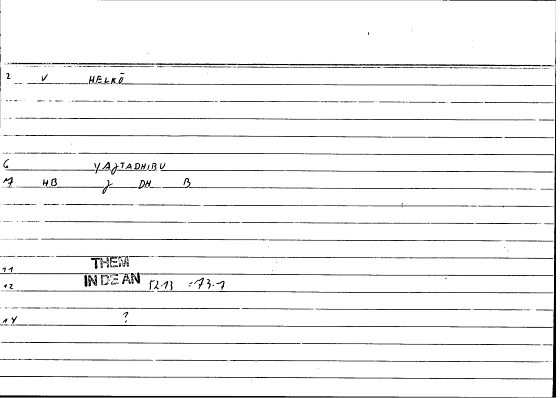 2 V HELKŌ
6 YAJTADHIBU
7 HB J DH B
11 THEM
12 IN DE AN 52-13 :73-1
14 ?